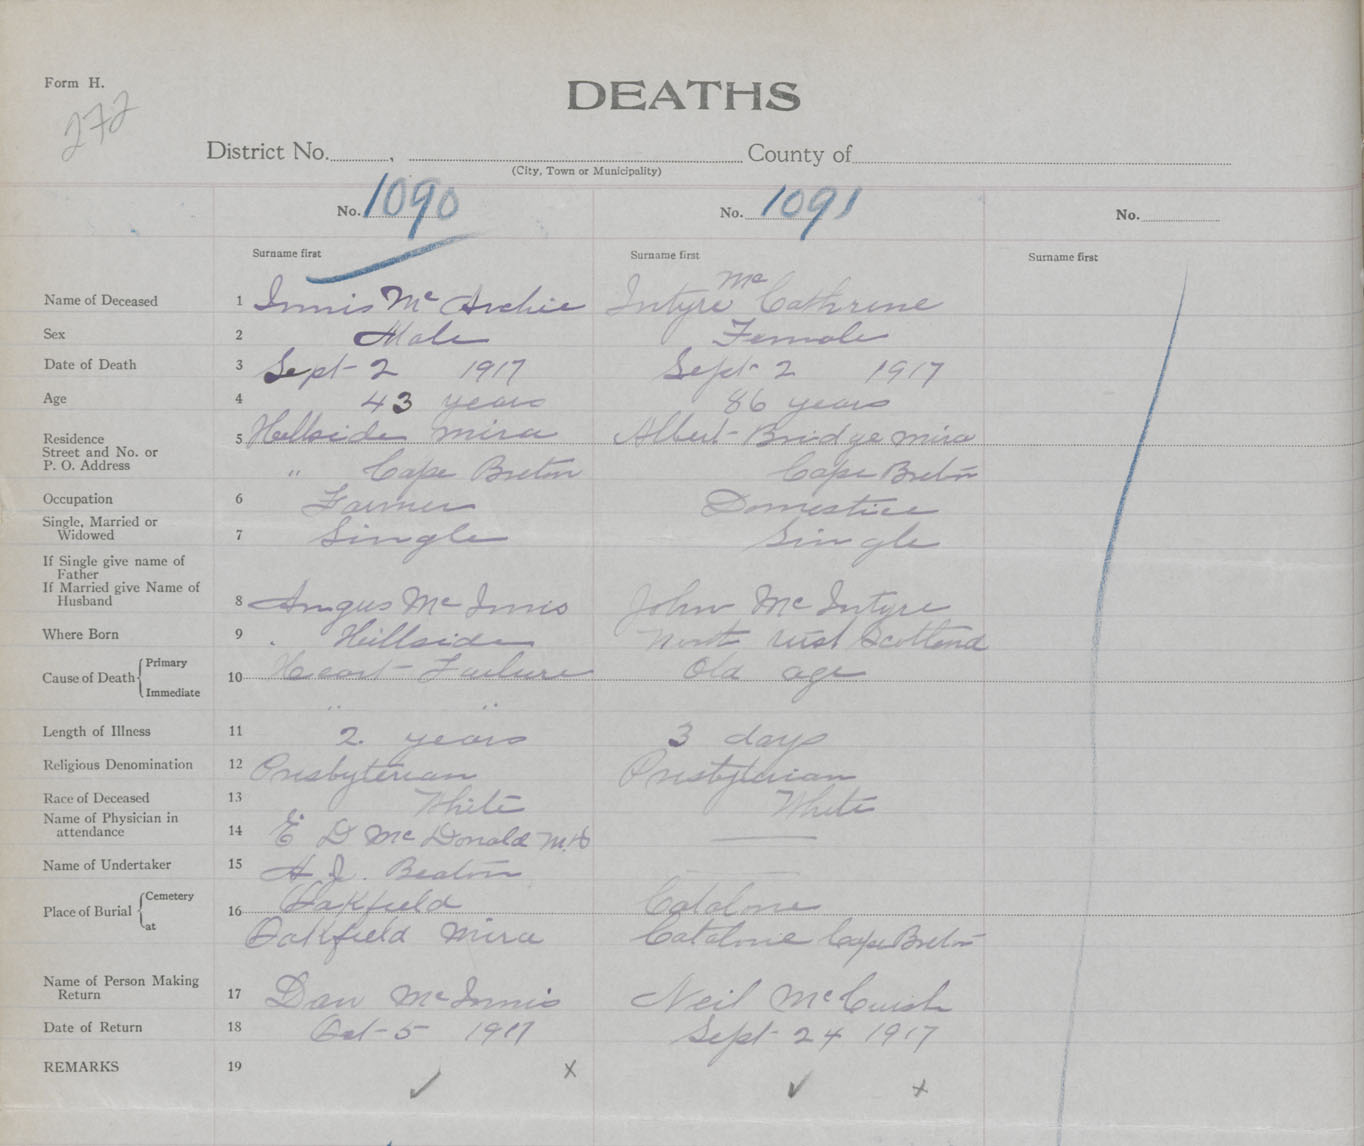 Form H.
DEATHS
272
District No. , County of
(City, Town or Municipality)
No. 1090 No. 1091 No.
Surname first Surname first Surname first
Name of Deceased 1 Innis Mc Archie Intyre Mc Cathrene
Sex 2 Male Female
Date of Death 3 Sept 2 1917 Sept 2 1917
Age 4 43 years 86 years
Residence
Street and No. or
P. O. Address
5 Hillside Mira Albert Bridge Mira
" Cape Breton Cape Breton
Occupation 6 Farmer Domestice
Single, Married or
Widowed 7 Single Single
If Single give name of
Father
If Married give Name of
Husband 8 Angus Mc Innis John Mc Intyre
Where Born 9 Hillside North uist Scotland
Cause of Death Primary
Immediate
10 Heart Failure Old age
" "
Length of Illness 11 2 years 3 days
Religious Denomination 12 Presbyterian Presbyterian
Race of Deceased 13 White White
Name of Physician in
attendance 14 E D Mc Donald M.D
Name of Undertaker 15 A J. Beaton
Place of Burial Cemetery
at
16 Oakfield Catalone
Oakfield Mira Catalone Cape Breton
Name of Person Making
Return 17 Dan McInnis Neil McCuish
Date of Return 18 Oct 5 1917 Sept 24 1917
REMARKS 19